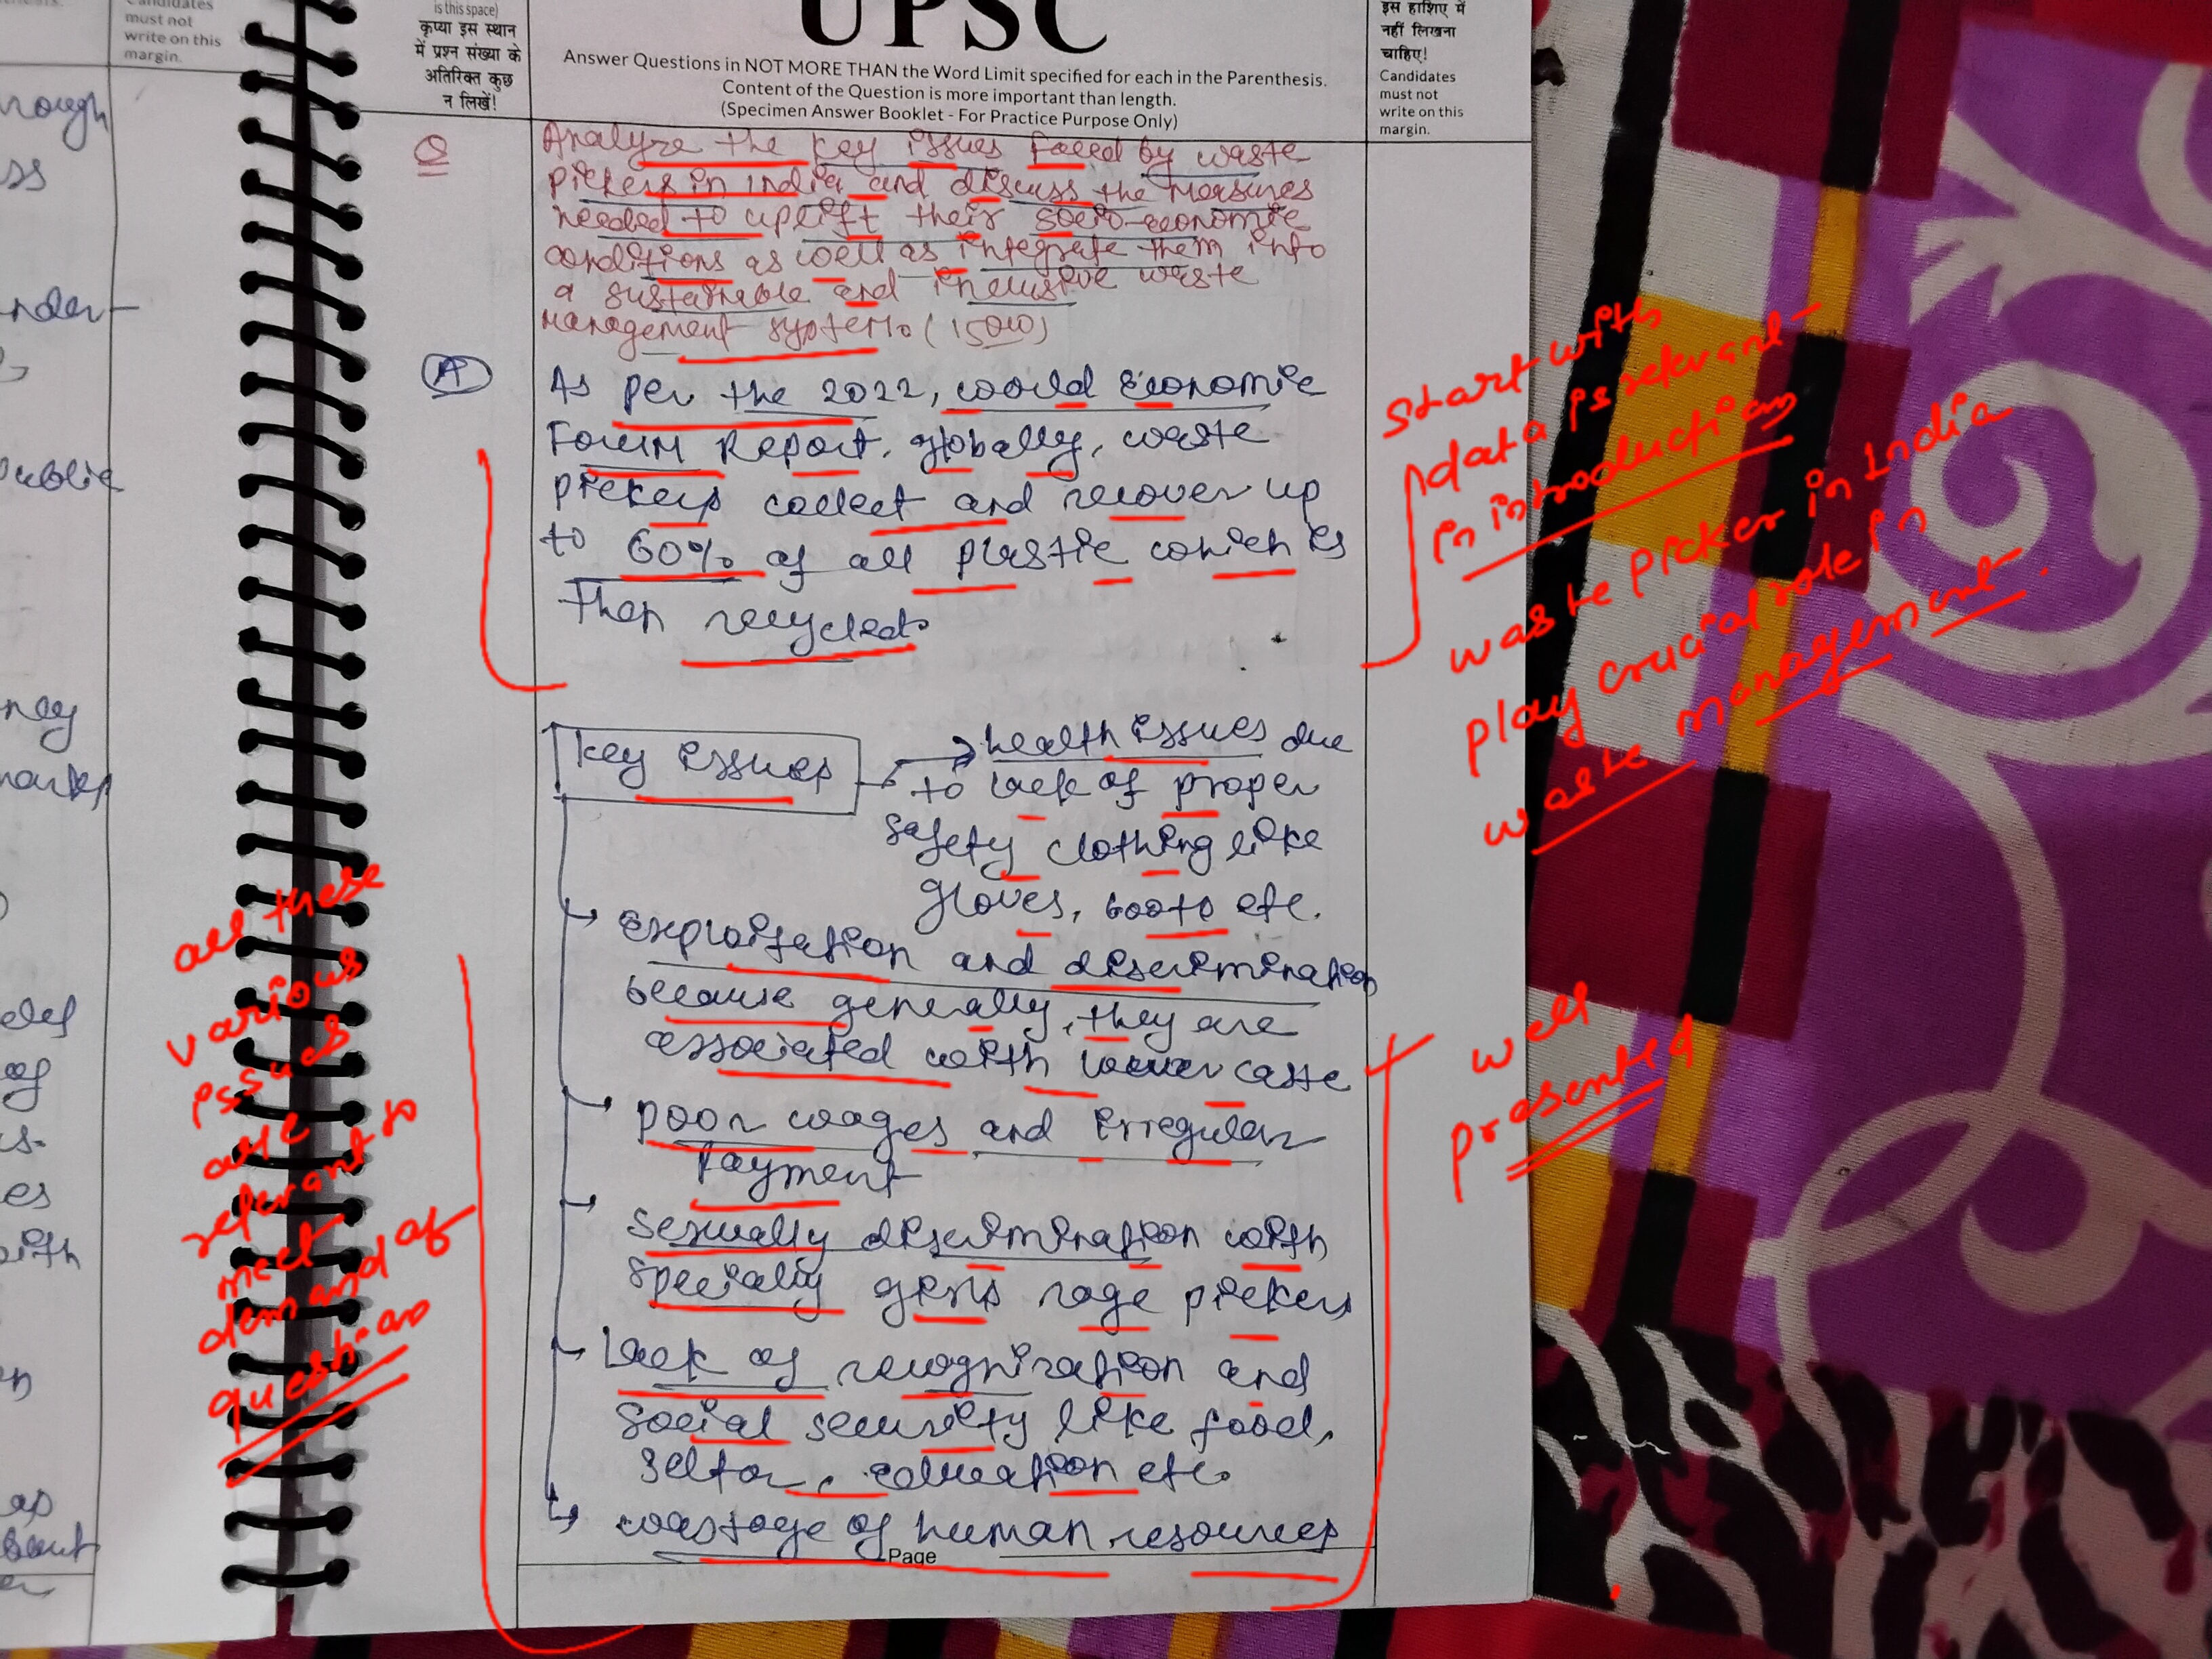 Candidates
must not
write on this
margin.
is this space)
कृप्या इस स्थान
में प्रश्न संख्या के
अतिरिक्त कुछ
न लिखें!
UPSC
Answer Questions in NOT MORE THAN the Word Limit specified for each in the Parenthesis.
Content of the Question is more important than length.
(Specimen Answer Booklet - For Practice Purpose Only)
इस हाशिए में
नहीं लिखना
चाहिए!
Candidates
must not
write on this
margin.
Q
Analyze the key issues faced by waste
pickers in india and discuss the measures
needed to uplift their socio-economic
conditions as well as integrate them into
a sustainable and inclusive waste
management system. (150w)
A
As per the 2022, world Economic
Forum Report, globally, waste
pickers collect and recover up
to 60% of all plastic which is
Then recycled.
start with
data is relevant
in introduction
waste picker in India
play crucial role in
waste management.
key issues → health issues due
to lack of proper
safety clothing like
gloves, boots etc.
→ exploitation and discrimination
because generally, they are
associated with lower caste
→ poor wages and irregular
payment
→ sexually discrimination with
specially girls rage pickers
→ Lack of recognization and
social security like food,
selter, education etc.
→ wastage of human resources
all these
various
issues
are
relevant to
meet
demand of
question
well
presented
Page